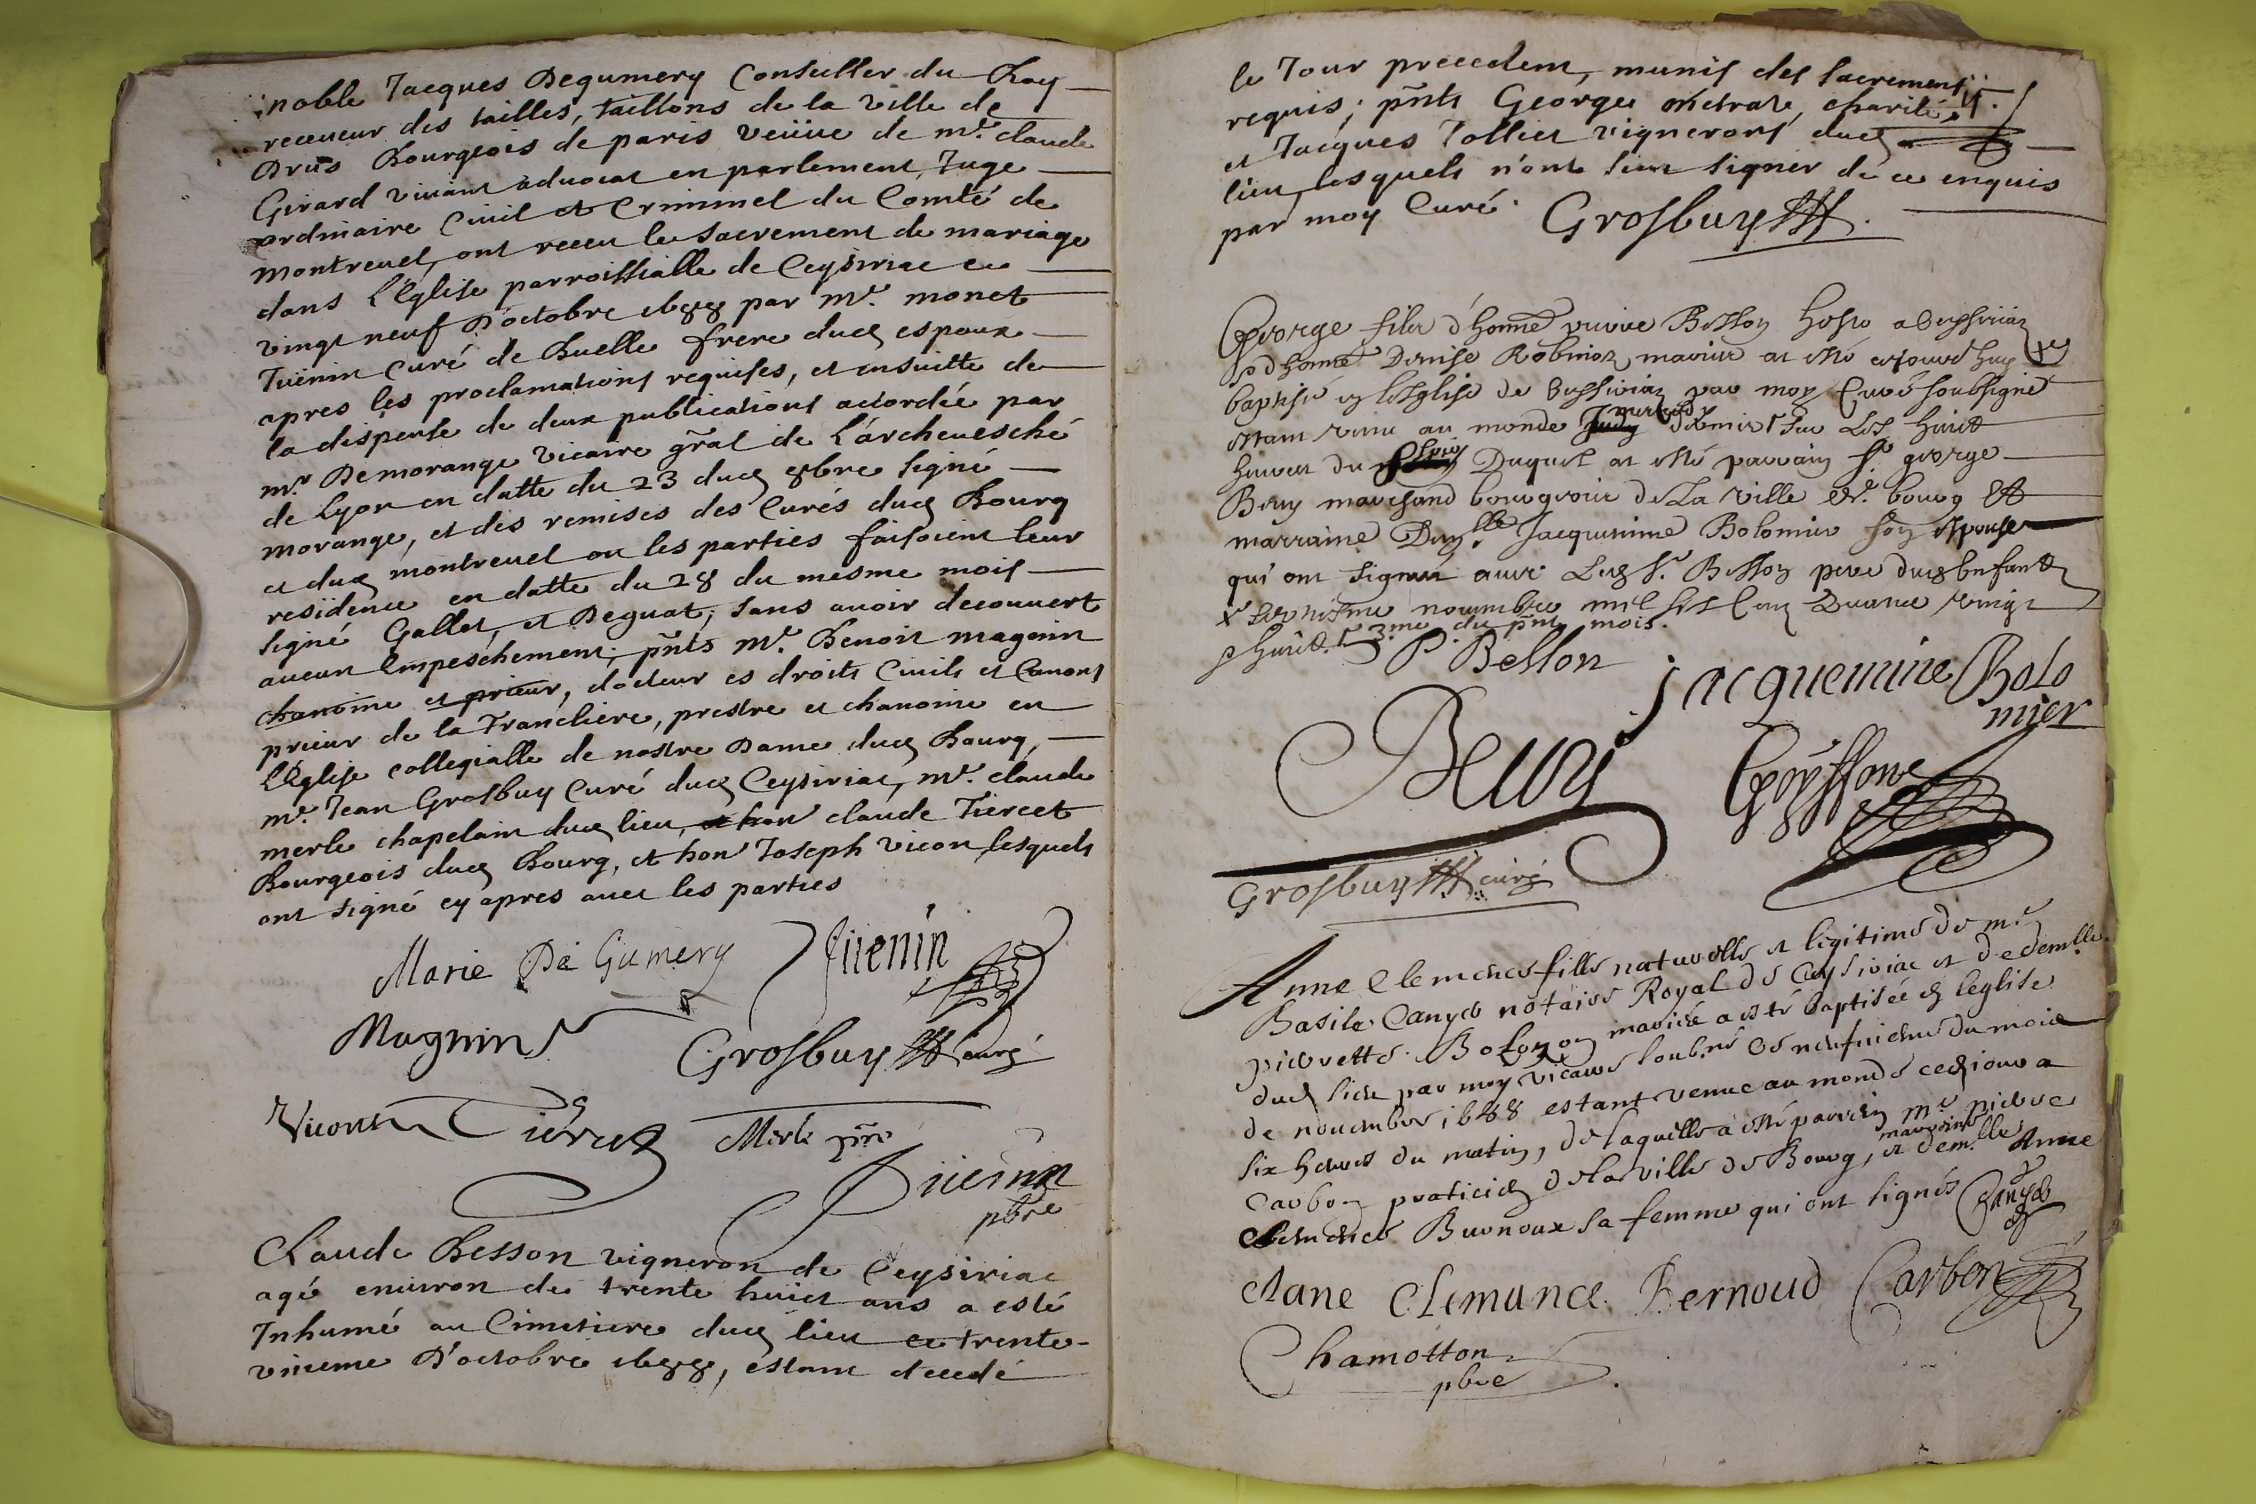 noble Jacques Degumery Conseiller du Roy
receueur des tailles, taillons de la ville de
Bourgeois de paris veüue de mr. claude
Girard viuant aduocat en parlement, Juge
ordinaire Ciuil et Criminel du Comté de
montreuel, ont receu le sacrement de mariage
dans L'Eglise parroissialle de Ceysiriac ce
vingt neuf D'octobre 1688 par mr. monet
Tüenin Curé de Ruelle frere dud espoux
apres les proclamations requises, et ensuitte de
la dispense de deux publications acordée par
mr. Demorange vicaire gñal de L'archeuesché
de Lyon en datte du 23 dud 8bre signé
morange, et des remises des Curés dud Bourg
et dud montreuel ou les parties faisoient leur
residence en datte du 28 du mesme mois
signé Gallet, et Deguat, sans auoir decouuert
aucun Empeschement; pñts mr. Benoit magnin
chanoine et prieur, docteur es droits Ciuils et Canons
prieur de la Francliere, prestre et chanoine en
L'Eglise collegialle de nostre Dame dud Bourg,
mr. Jean Grosbuy Curé dud Ceysiriac, mr. claude
merle chapelain dud lieu, claude Tiercet
Bourgeois dud Bourg, et hon Joseph vicon lesquels
ont signé cy apres auec les parties
Marie De Gumery Jüenin
Magnin Grosbuy curé
Vicont Tiercet Merle pbre
Jüenin
pbre
Claude Besson vigneron de Ceysiriac
agé enuiron de trente huict ans a esté
Inhumé au Cimetiere dud lieu ce trente
vnieme D'octobre 1688, estant decedé
le Jour precedent, munis des sacrements
requis; pñts George metrale, charité
et Jacques Tollier vignerons dud
lieu, lesquels n'ont sceu signer de ce enquis
par moy Curé. Grosbuy
George filz d'honne pierre Besson hoste a Ceyssiriaz
& d'honne Denise Robinoz mariez at esté ajourd'huy
baptisé en L'esglise de Ceyssiriaz par moy Curé soubsigné
estant venu au monde mercredy dernier sur Les huict
heures du soir Duquel at esté parrain sr. george
Beuy marchand bourgeois de La ville de bourg et
marraine Damlle Jacquemine Bolomier son espouse
qui ont signés auec Led sr. Besson pere dud Enfant
septiesme nouembre mil six Cent Quatre vingt
& huict. 3me du pñt mois.
P. Besson Jacquemine Bolo
mier
Beuy Goyffone
Grosbuy curé
Anne Clemence fille naturelle et legitime de mr.
Basile Canyd notaire Royal de Ceysiriac et de demlle.
pierrette Bolozon mariés a esté baptisée en leglise
dud lieu par moy vicaire soub.né ce neufuieme du mois
de nouembre 1688 estant venue au monde ced jour a
six heures du matin, de laquelle a esté parrein mr. pierre
Carbon praticien de la ville de Bourg, et marreine demlle. Anne
Clemence Burnoux sa femme qui ont signés Canyd
Anne Clemance Bernoud Carbon
Chamotton
pbre